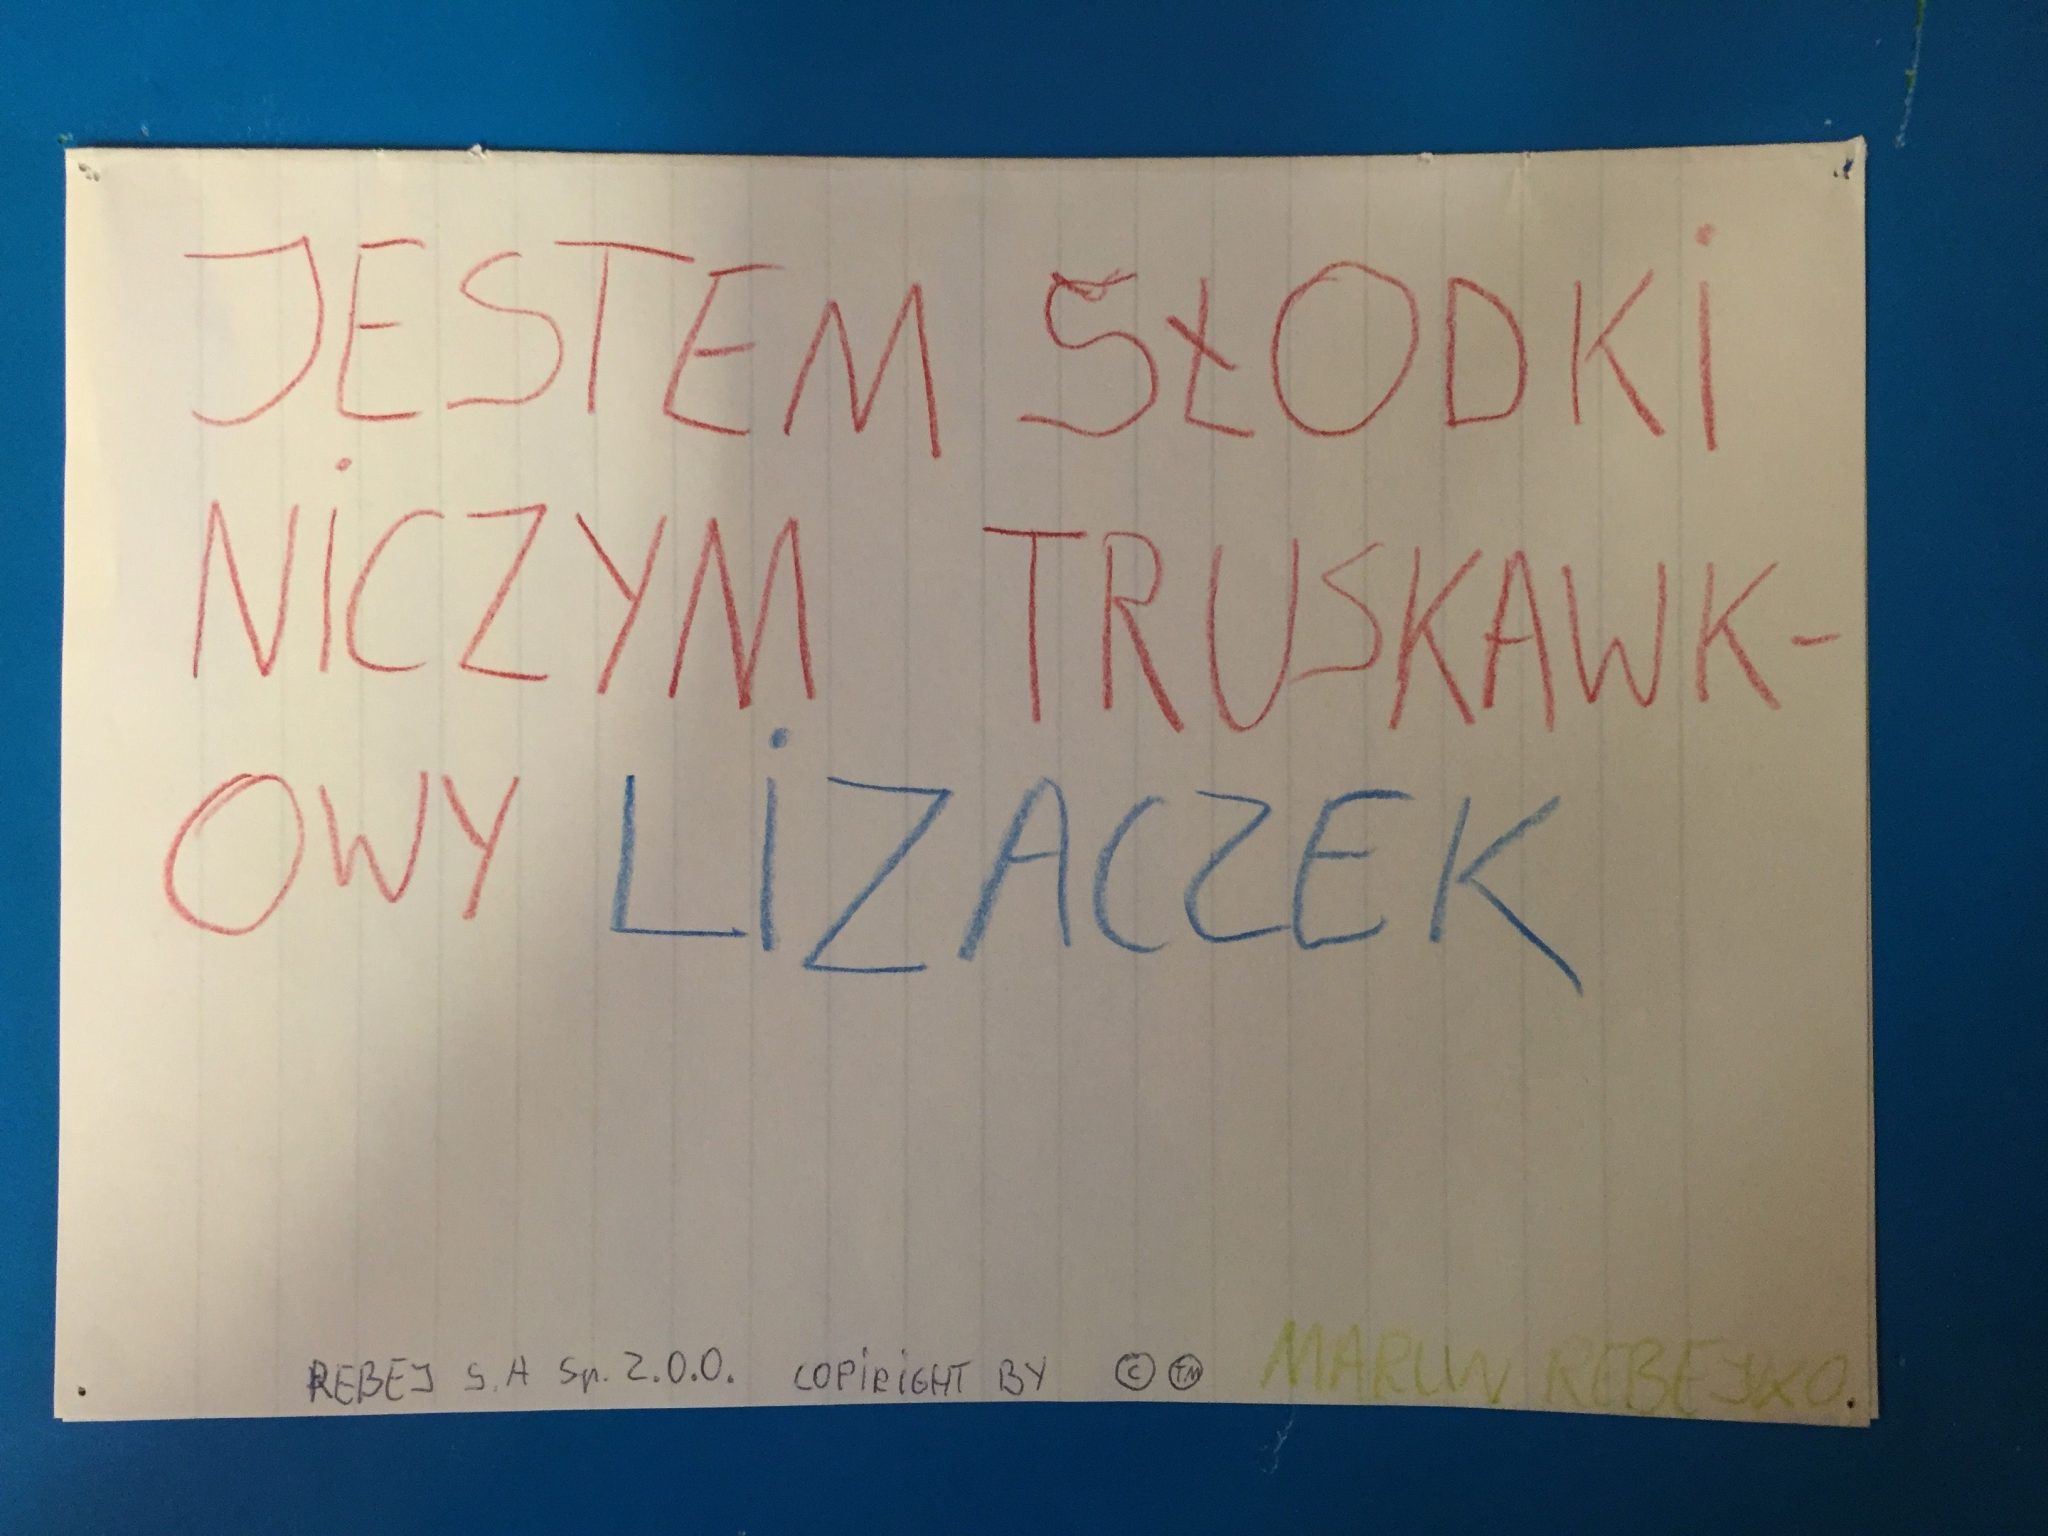 JESTEM SŁODKI
NICZYM TRUSKAWK-
OWY LIZACZEK
REBEJ S.A Sp. Z.O.O. COPIRIGHT BY © ™ MARCIN REBEJKO.